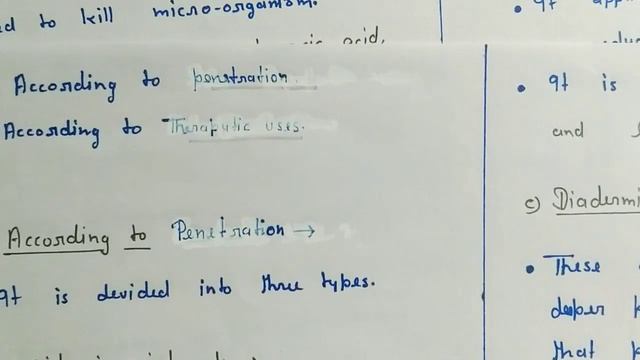 to kill micro-organism.
acid,
According to penetration.
According to Theraputic uses.
According to Penetration →
It is devided into three types.
• It
• It is
and
c) Diadermi
• These
deeper
that